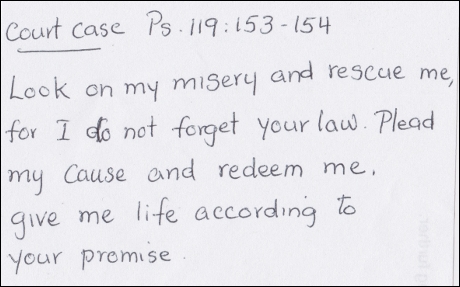 Court case Ps. 119:153-154
Look on my misery and rescue me,
for I do not forget your law. Plead
my Cause and redeem me.
give me life according to
your promise.